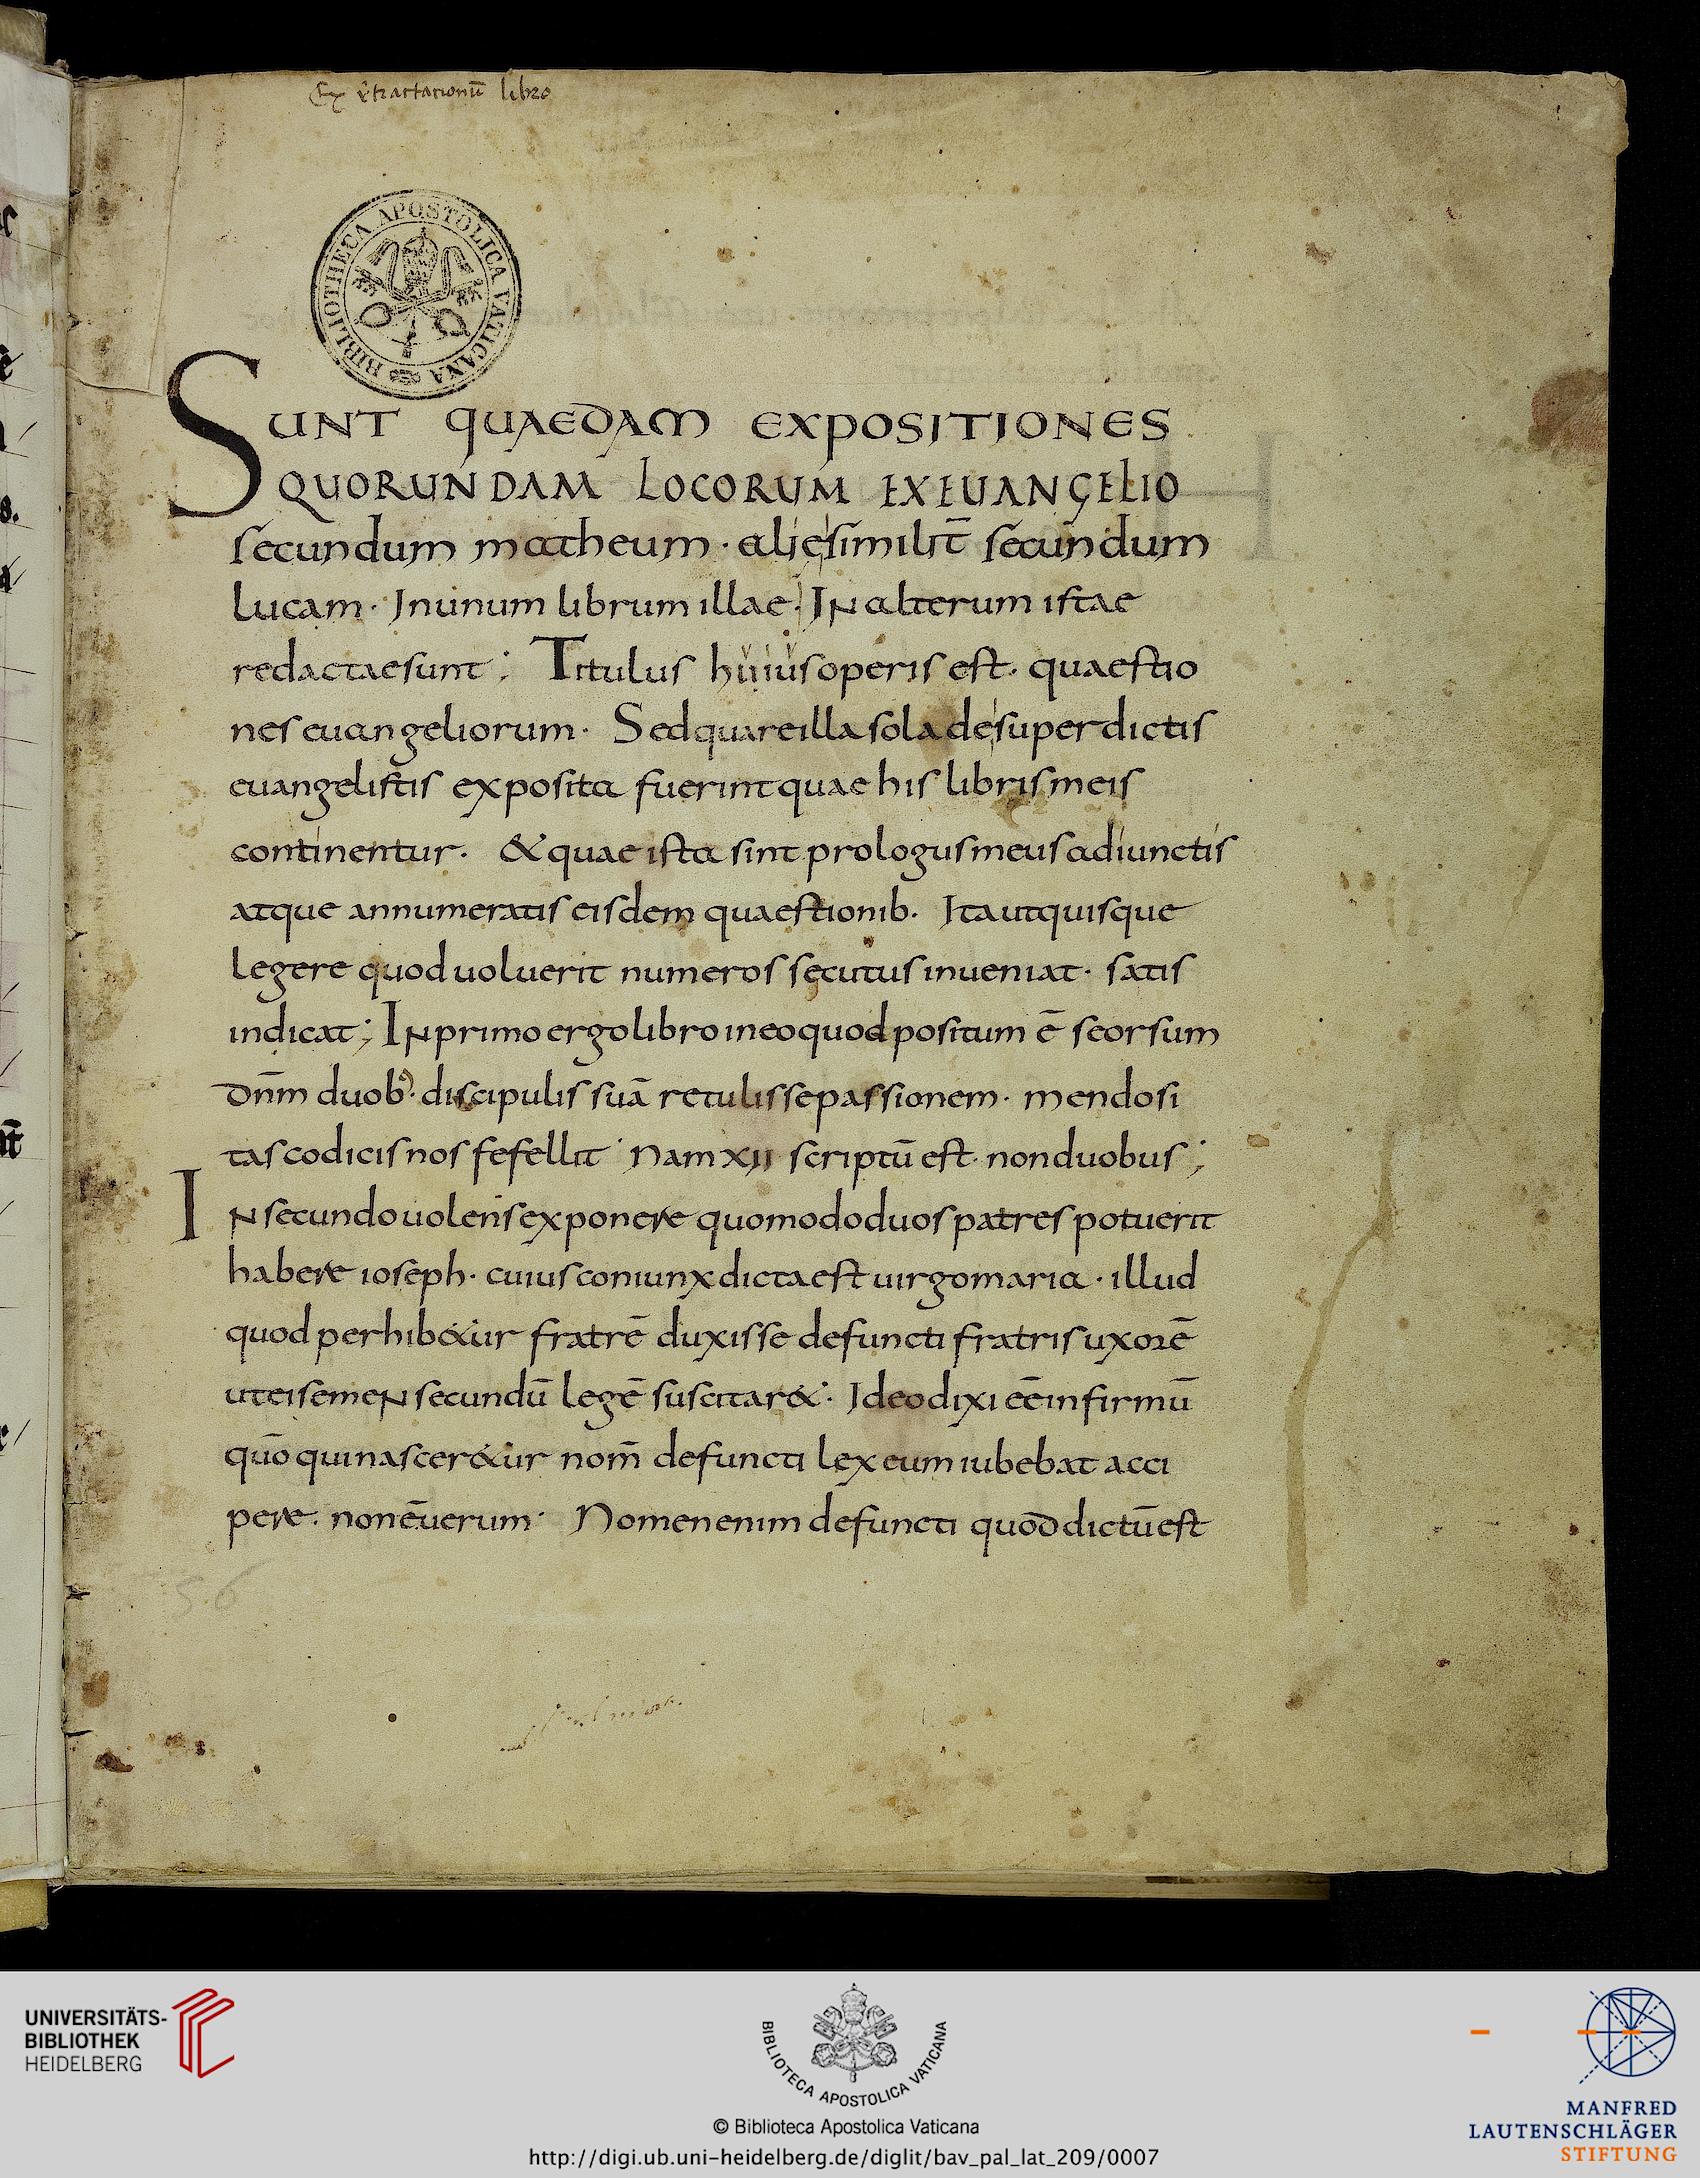 Ex retractacionū libro
BIBLIOTHECA APOSTOLICA VATICANA
SUNT QUAEDAM EXPOSITIONES
QUORUNDAM LOCORUM EXEUANGELIO
secundum matheum · alię similit̄ secundum
lucam · Inunum librum illae · IN alterum istae
redactaesunt ; Titulus huius operis est · quaestio
nes euangeliorum · Sed quare illa sola desuperdictis
euangelistis exposita fuerint quae his libris meis
continentur · & quae ista sint prologus meus adiunctis
atque annumeratis eisdem quaestionib · Ita ut quisque
legere quod uoluerit numeros secutus inueniat · satis
indicat ; IN primo ergo libro in eo quod positum ē seorsum
dn̄m duob · discipulis suā retulisse passionem · mendosi
tas codicis nos fefellit · Nam XII scriptū est · non duobus ;
IN secundo uolens exponere quomodo duos patres potuerit
habere ioseph · cuius coniunx dicta est uirgo maria · illud
quod perhib&ur fratrē duxisse defuncti fratris uxorē
ut ei semeN secundū legē suscitar& · Ideo dixi eē infirmū
quō qui nascer&ur nom̄ defuncti lex eum iubebat acci
pere · non ē uerum · Nomen enim defuncti quod dictū est
56
UNIVERSITÄTS-
BIBLIOTHEK
HEIDELBERG
BIBLIOTECA APOSTOLICA VATICANA
© Biblioteca Apostolica Vaticana
http://digi.ub.uni-heidelberg.de/diglit/bav_pal_lat_209/0007
MANFRED
LAUTENSCHLÄGER
STIFTUNG